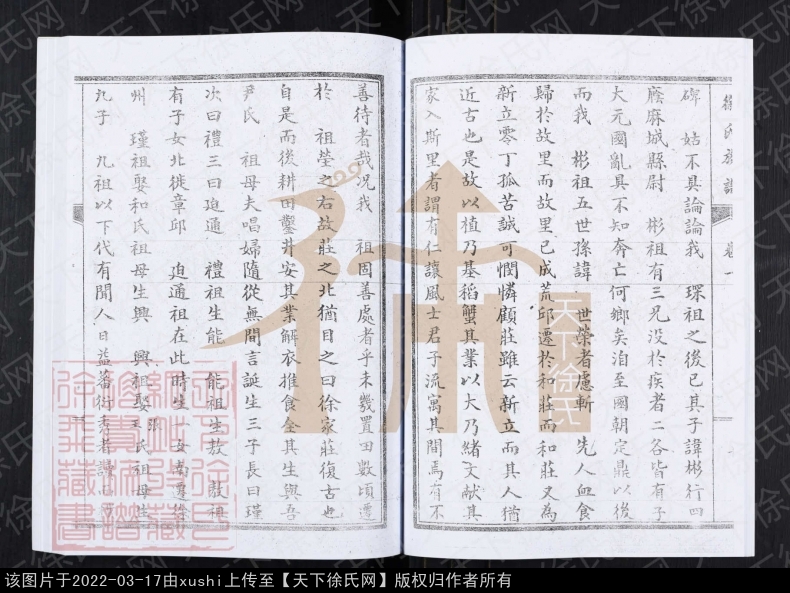 徐氏族譜
卷一
碑　姑不具論論我　琛祖之後已其子諱彬行四
麻城縣尉　彬祖有三兄没於疾者二各皆有子
大元國亂具不知奔亡何鄉矣洎至國朝定鼎以後
而我　彬祖五世孫諱　世榮者慮斬　先人血食
歸於故里而故里已成荒邱遷於和莊而和莊又為
新立零丁孤苦誠可憫憐顧莊雖云新立而其人猶
近古也是故以植乃基稻蟹其業以大乃緒文獻其
家入斯里者謂有仁讓風士君子流寓其間焉有不
善待者哉况我　祖固善處者乎未幾置田數頃遷
於　祖塋之右故莊之北猶目之曰徐家莊復古也
自是而後耕田鑿井安其業解衣推食全其生與吾
尹氏　祖母夫唱婦隨從無間言誕生三子長曰瑾
次曰禮三曰廸通　禮祖生能　能祖生敖　敖
有子女北徙章邱　廸通祖在此時生　女
州　瑾祖娶和氏祖母生興　興祖娶張王氏祖母生
九子　九祖以下代有聞人日益蕃衍秀者讀
天下徐氏
天下徐氏网
该图片于2022-03-17由xushi上传至【天下徐氏网】版权归作者所有